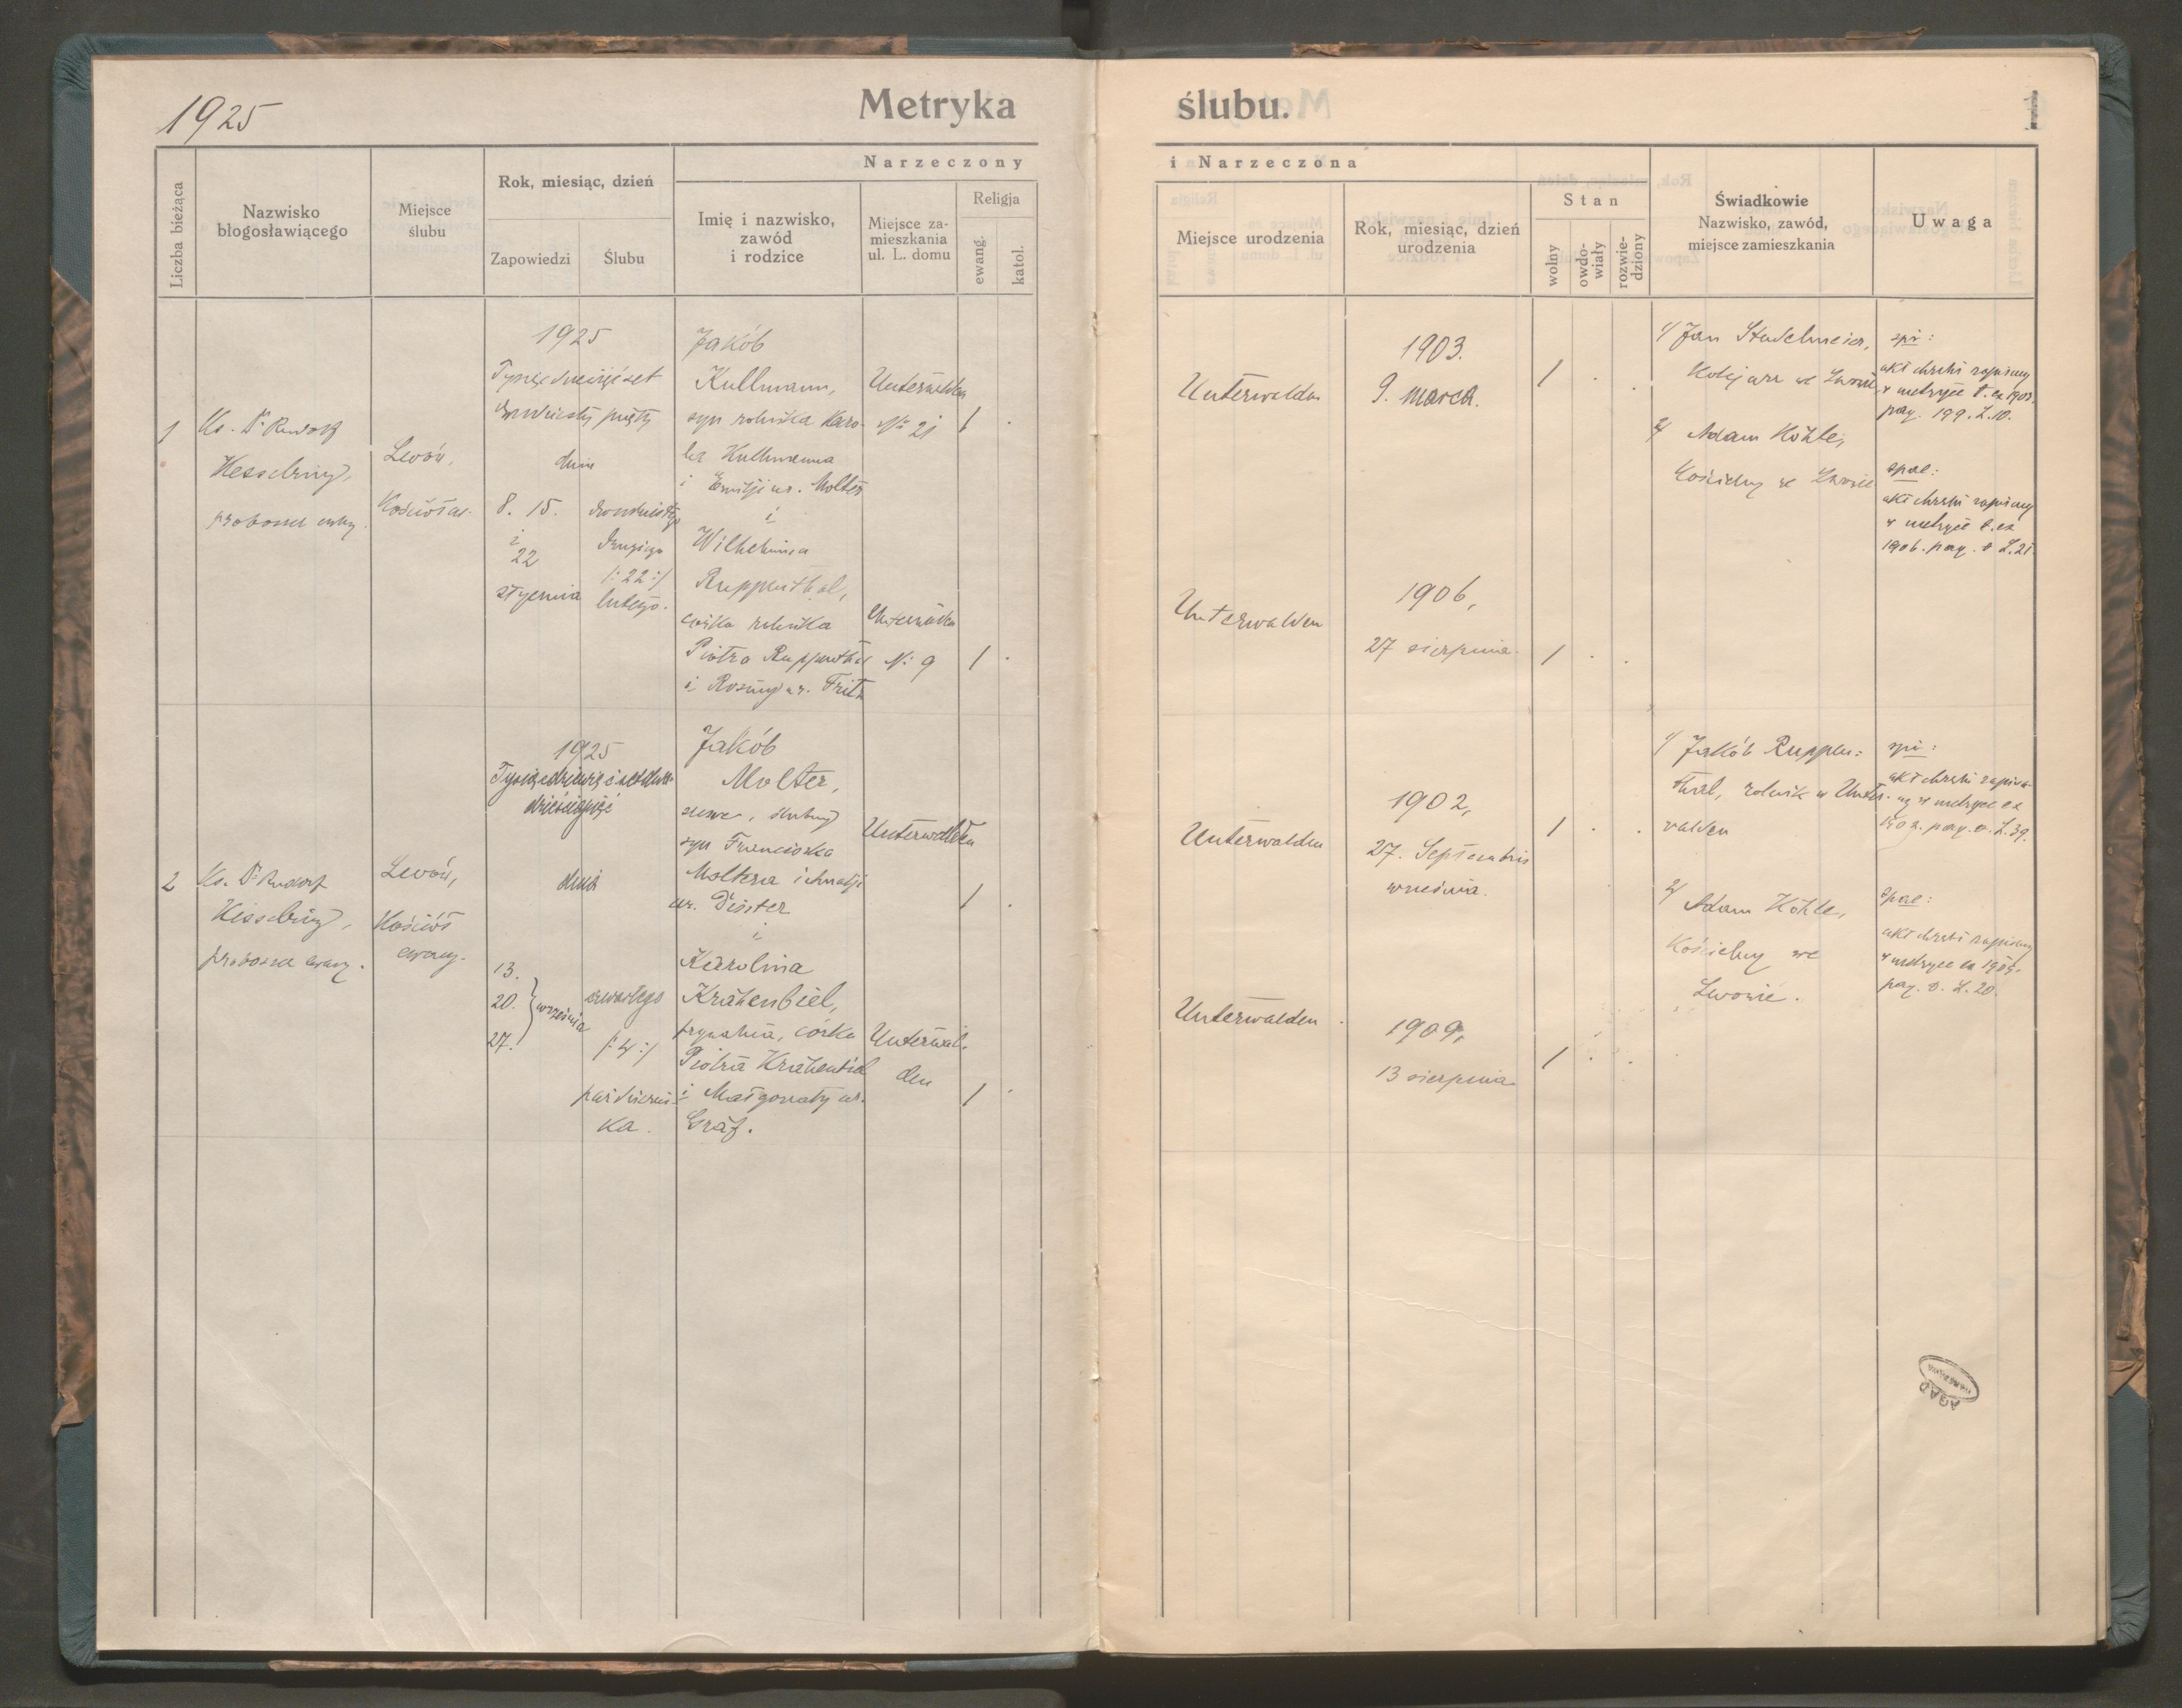 1925
Metryka ślubu.
1
Liczba bieżąca
Nazwisko
błogosławiącego
Miejsce
ślubu
Rok, miesiąc, dzień
Zapowiedzi
Ślubu
Narzeczony
Imię i nazwisko,
zawód
i rodzice
Miejsce za-
mieszkania
ul. L. domu
Religja
ewang.
katol.
i Narzeczona
Miejsce urodzenia
Rok, miesiąc, dzień
urodzenia
Stan
wolny
owdo-
wiały
rozwie-
dziony
Świadkowie
Nazwisko, zawód,
miejsce zamieszkania
Uwaga
1
Ks. Dr Rudolf
Kesselring,
proboszcz
Lwów,
Kościół
1925
dnia
8. 15.
i
22
stycznia
dwudziestego
drugiego
/:22:/
lutego.
Jakób
Kullmann,
syn rolnika Karo-
la Kullmanna
i Emilji ur. Molter
i
Wilhelmina
Ruppenthal,
córka rolnika
Piotra Ruppenthal
i Roziny ur. Fritz
Unterwalden
No 21
1
Unterwalden
No 9
1
Unterwalden
1903.
9. marca.
1
Unterwalden
1906,
27 sierpnia.
1
1/ Jan Stadelmeier,
we Lwowie
2/ Adam Köhle,
Kościelny we Lwowie
akt chrztu zapisany
w metryce t. ex 1903.
pag. 199. L. 10.
akt chrztu zapisany
w metryce t. ex
1906. pag. L. 21.
2
Ks. Dr Rudolf
Kesselring,
proboszcz ewang.
Lwów,
Kościół
ewang.
1925
Tysiącdziewięćsetdwa-
dzieściapięć
dnia
13.
20.
27.
września
czwartego
/:4:/
październi-
ka.
Jakób
Molter,
syn Franciszka
Moltera i Amalji
ur. Dister
i
Karolina
Krähenbiel,
prywatna, córka
Piotra Krähenbiel
i Małgorzaty ur.
Gräf.
Unterwalden
1
Unterwal-
den
1
Unterwalden
1902,
27. Septembris
września.
1
Unterwalden
1909,
13 sierpnia
1
1/ Jakób Ruppen=
thal, rolnik w Unter-
walden
2/ Adam Köhle,
Kościelny we
Lwowie.
akt chrztu zapisa-
ny w metryce ex
1902. pag. L. 39.
akt chrztu zapisany
w metryce ex 1909.
pag. L. 20.
AGAD